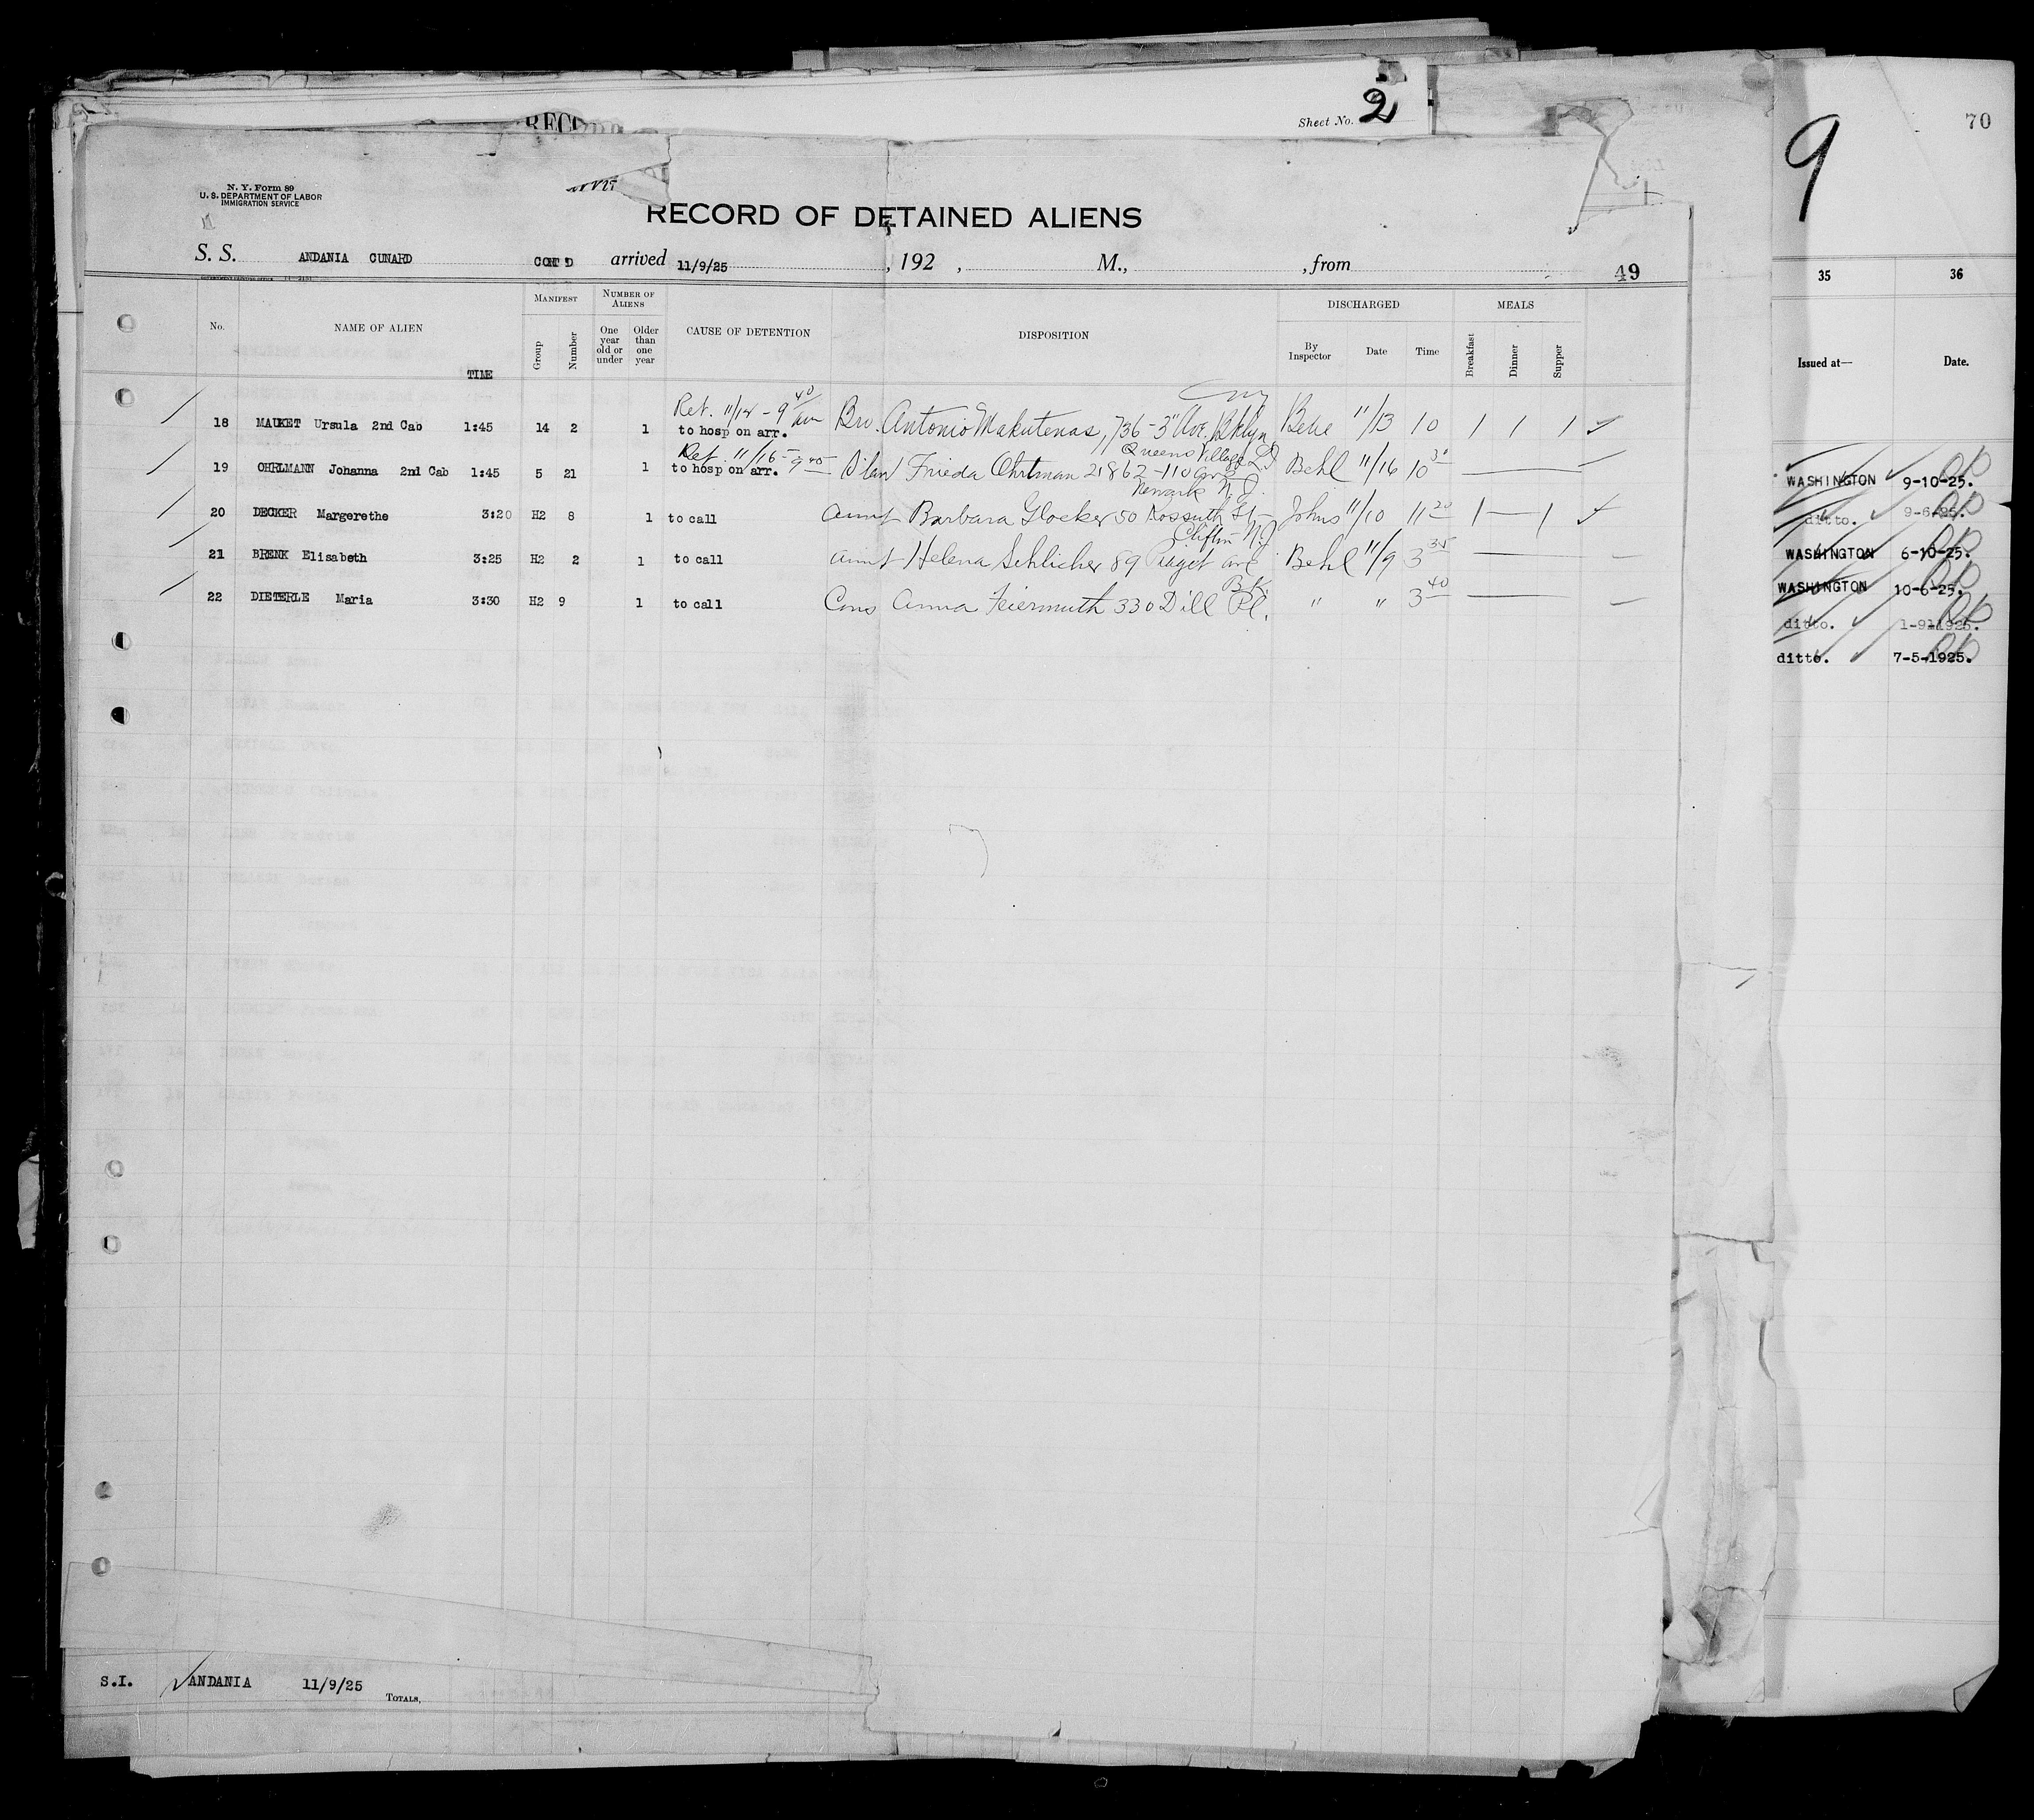 Sheet No. 2
9
70
N. Y. Form 89
U. S. DEPARTMENT OF LABOR
IMMIGRATION SERVICE
RECORD OF DETAINED ALIENS
S. S. ANDANIA CUNARD CONT'D arrived 11/9/25, 192 , M., , from 49
No. NAME OF ALIEN TIME MANIFEST Group Number NUMBER OF ALIENS One year old or under Older than one year CAUSE OF DETENTION DISPOSITION DISCHARGED By Inspector Date Time MEALS Breakfast Dinner Supper
Ret. 11/12 - 9 40 AM
18 MAUKET Ursula 2nd Cab 1:45 14 2 1 to hosp on arr. Bro. Antonio Makutenas, 736 - 3" Ave. Bklyn 11/13 10 1 1 1
Ret. 11/16 - 9 40 Queens Village L.I.
19 OHRLMANN Johanna 2nd Cab 1:45 5 21 1 to hosp on arr. Frieda Ohrtman 21862 - 110 Behl 11/16 10 30
Newark N.J.
20 DECKER Margerethe 3:20 H2 8 1 to call aunt Barbara Glocker 50 Kossuth St - Johns 11/10 11 20 1 — 1
Clifton N.J.
21 BRENK Elisabeth 3:25 H2 2 1 to call aunt Helena Schlicher 89 Piaget ave Behl 11/9 3 35
Bk.
22 DIETERLE Maria 3:30 H2 9 1 to call Cous Anna Feiermuth 330 Dill Pl. " " 3 40
S.I. ANDANIA 11/9/25 TOTALS,
35 36
Issued at— Date.
WASHINGTON 9-10-25.
ditto. 9-6-25.
WASHINGTON 6-10-25.
WASHINGTON 10-6-25.
ditto. 1-9-1925.
ditto. 7-5-1925.